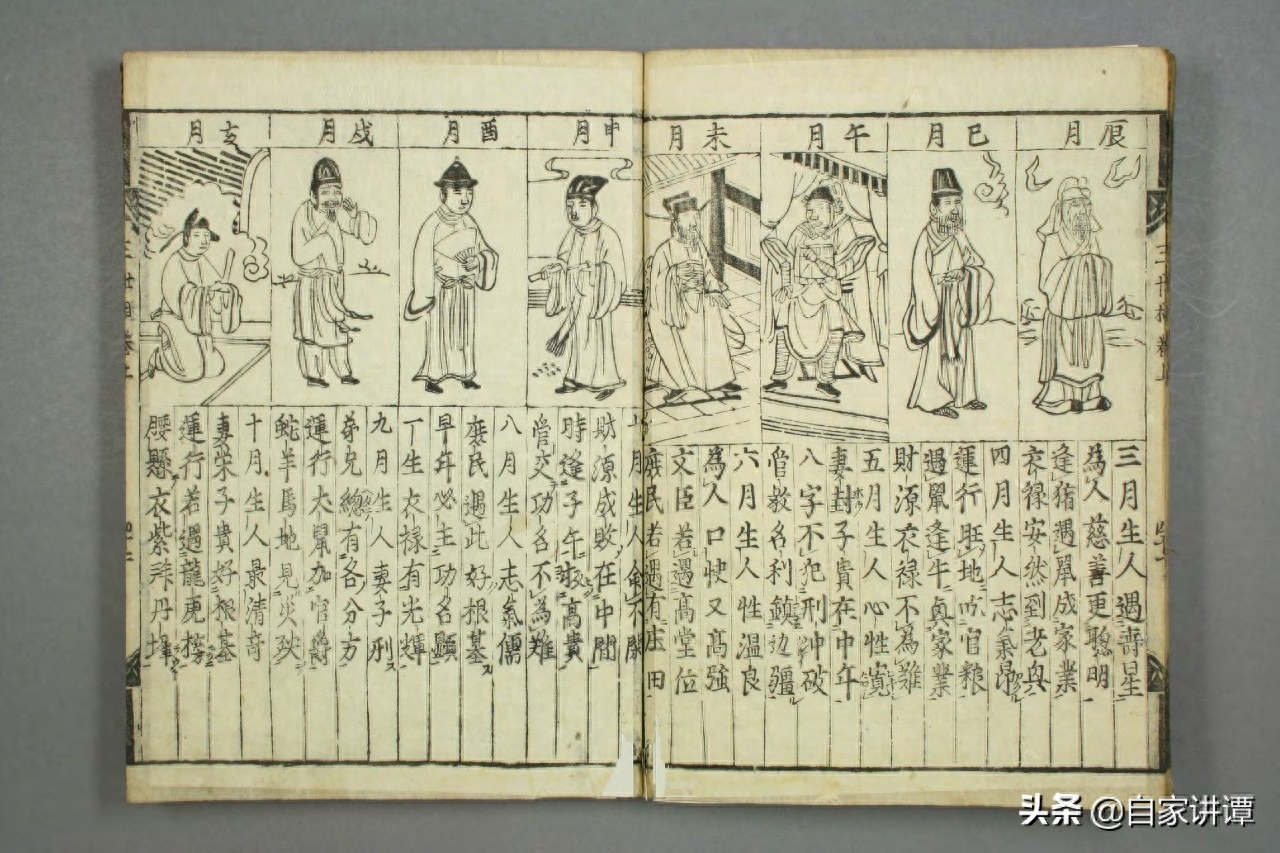 辰月
巳月
午月
未月
三月生人遇壽星
為人慈善更聰明
逢猪遇鼠成家業
衣祿安然到老
四月生人志氣昂
運行旺地吹官粮
遇鼠逢牛興家業
財源衣禄不為難
五月生人心性寛
妻封子貴在中年
八字不犯刑冲破
管教名利鎮边疆
六月生人性温良
為人口快又高強
文臣若遇高堂位
庶民若遇有庄田
三世相卷上
申月
酉月
戌月
亥月
七月生人命不閑
財源成敗在中間
時逢子午財高貴
管交功名不為難
八月生人志氣儒
庶民遇此好根基
早年必主功名顯
一生衣祿有光輝
九月生人妻子刑
弟兄總有各分方
運行犬鼠加官爵
蛇羊馬地見災殃
十月生人最清奇
妻榮子貴好根基
運行若遇龍更
腰懸衣紫拜丹墀
三世相卷上
头条 @自家讲谭